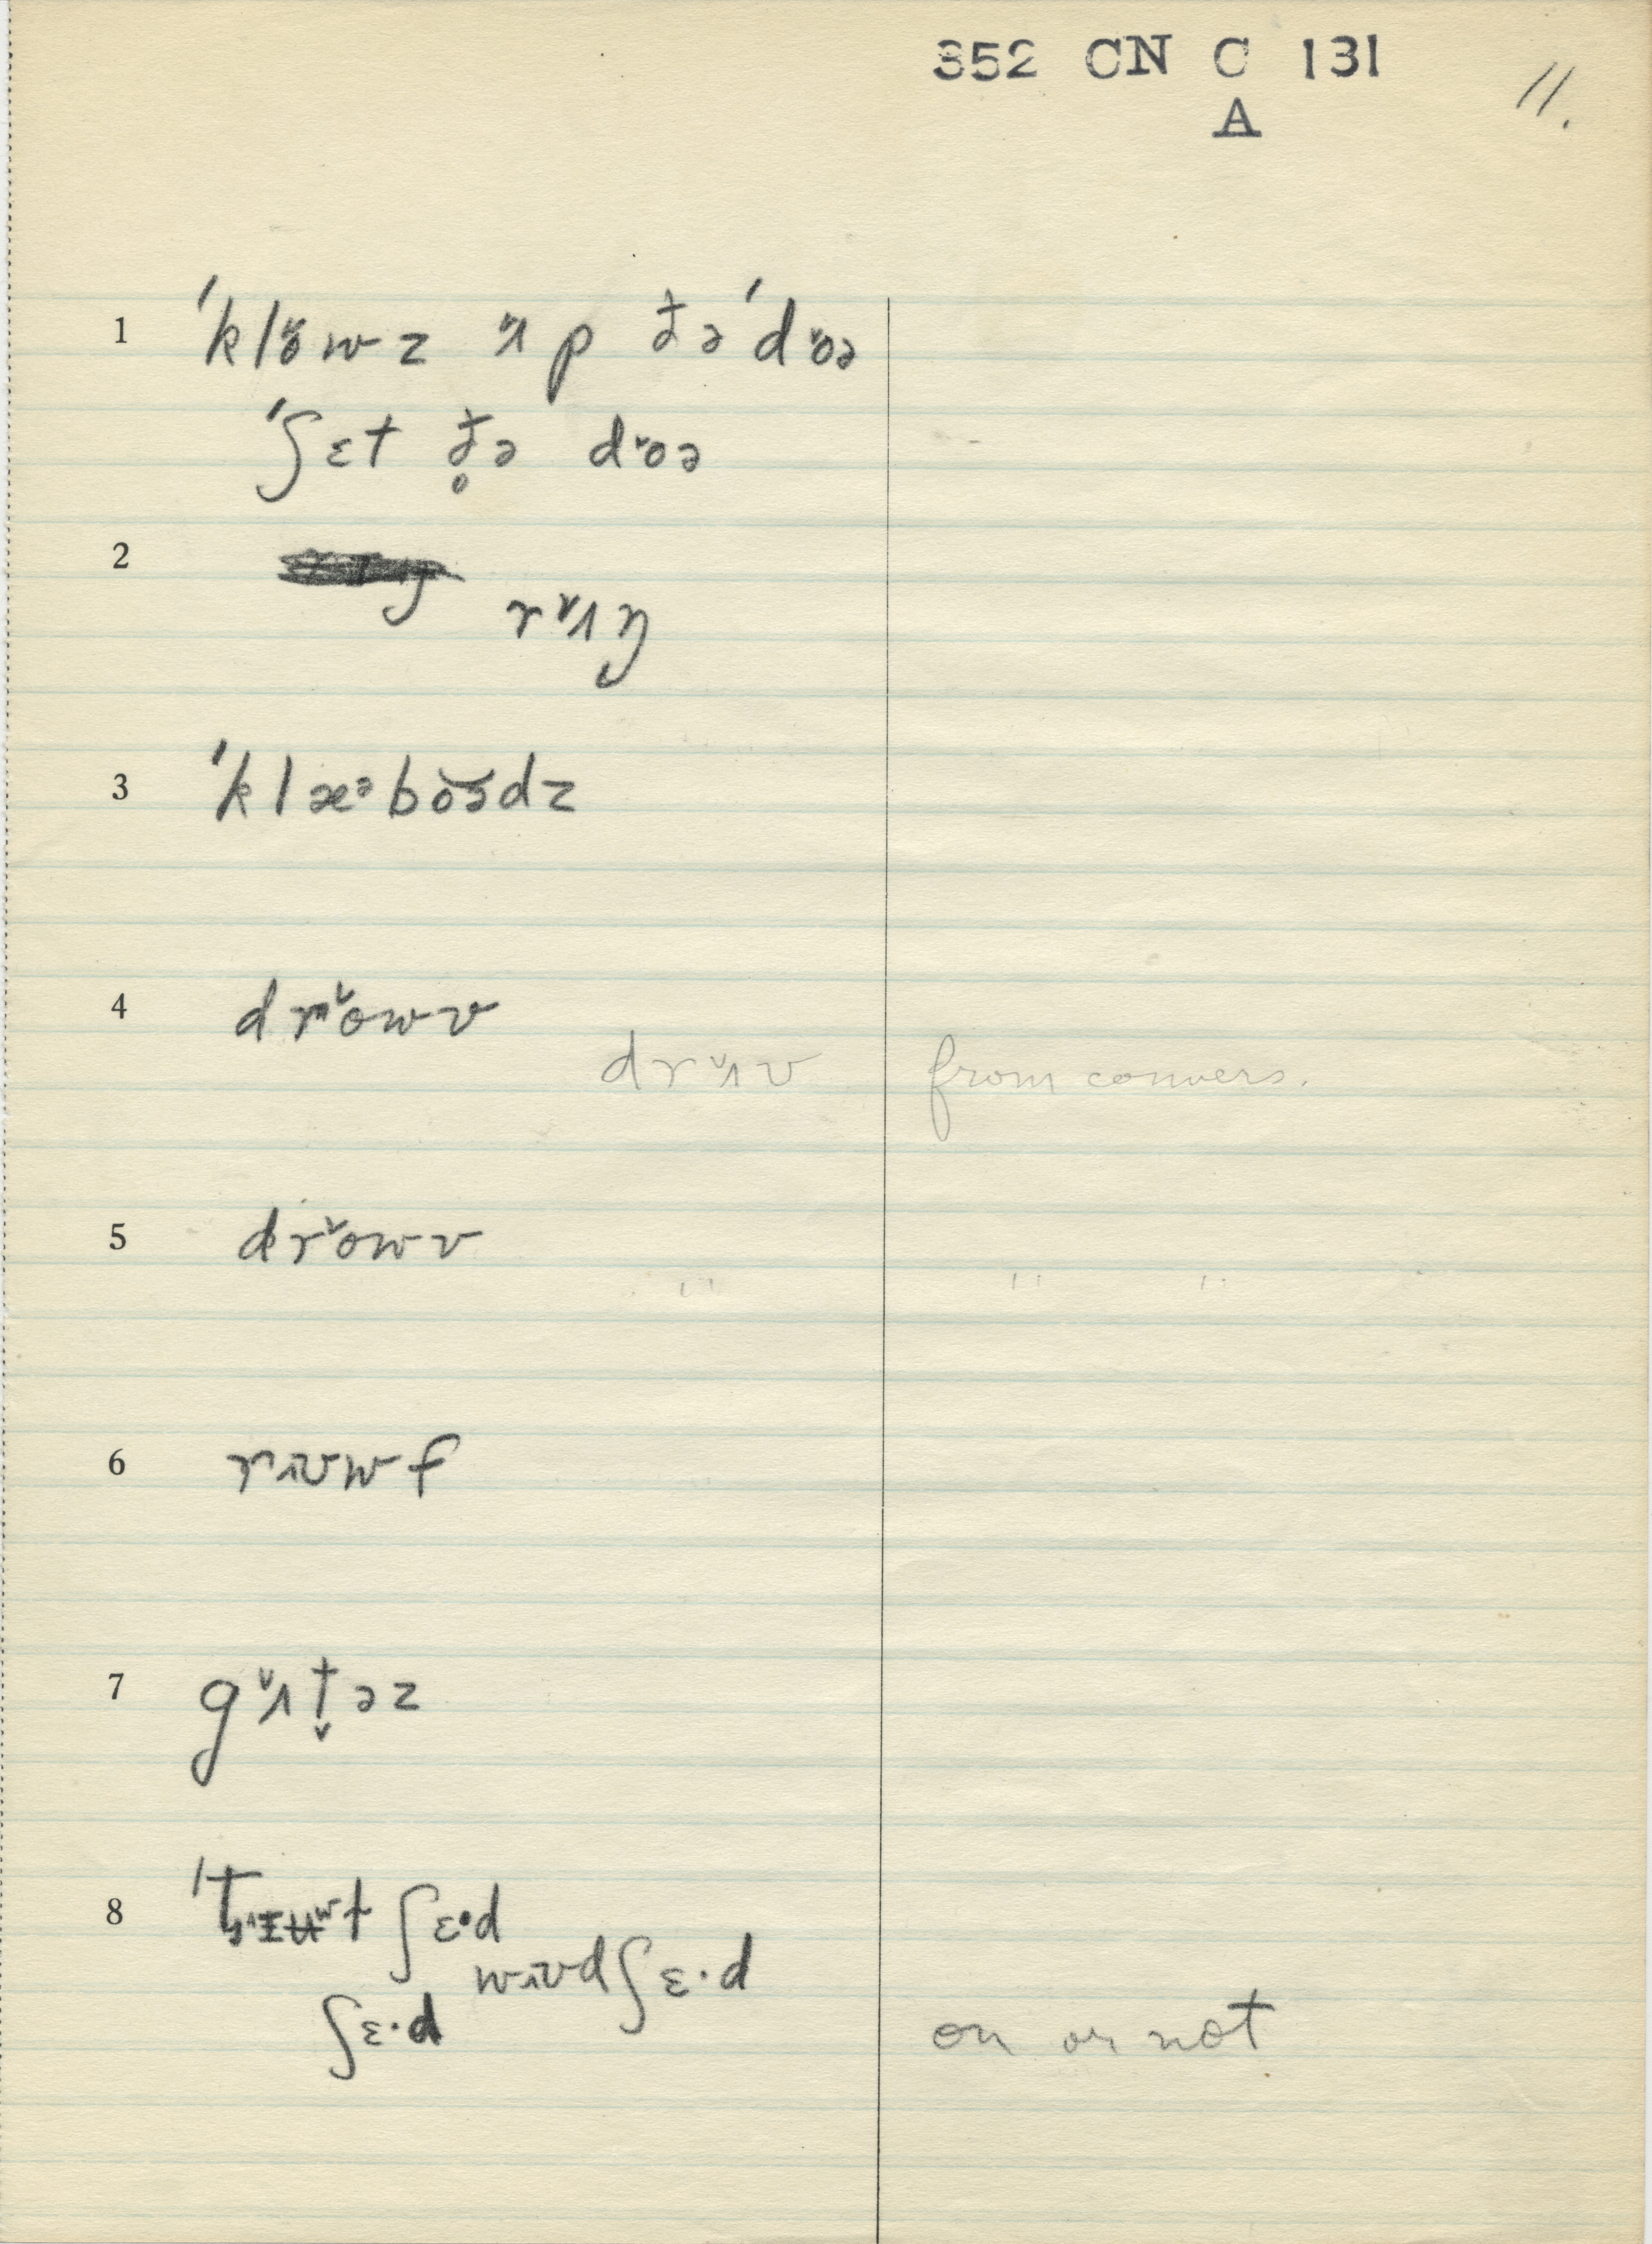 352 CN C 131
A
11.
1 ˈklo̬wz ʌ̬p ðə ˈdo̬ə
ˈʃɛt ð̥ə do̬ə
2 rʌ̬ŋ
3 ˈklæᵊbo̬ɚdz
4 dro̬wv
drʌ̬v from convers.
5 dro̬wv
" " "
6 rʊwf
7 gʌ̬t̬əz
8 ʃɛ·d
wʊd ʃɛ·d
ʃɛ·d on or not